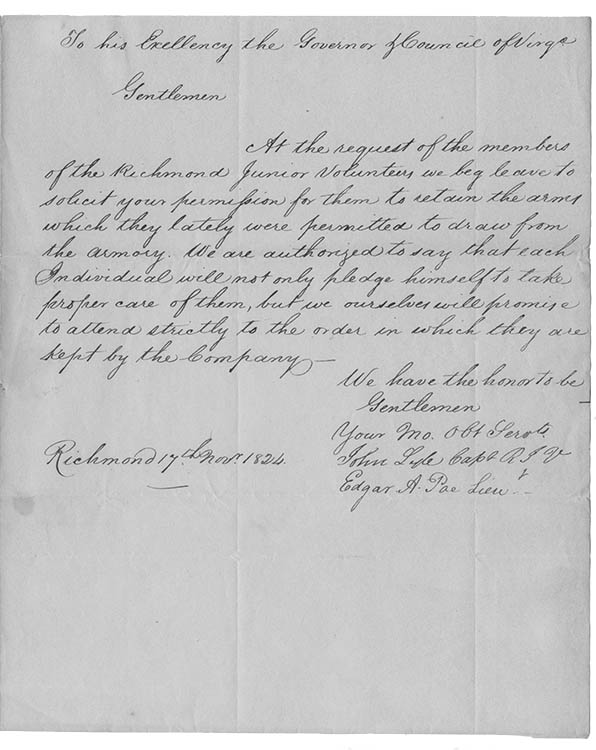 To his Exellency the Governor & Council of Virga
Gentlemen
At the request of the members
of the Richmond Junior Volunteers we beg leave to
solicit your permission for them to retain the arms
which they lately were permitted to draw from
the armory. We are authorized to say that each
Individual will not only pledge himself to take
proper care of them, but we ourselves will promise
to attend strictly to the order in which they are
kept by the Company —
We have the honor to be
Gentlemen
Your Mo. Obt Servts.
Richmond 17th. Novr. 1824.
John Lyle Capt R J V
Edgar A. Poe Lieut